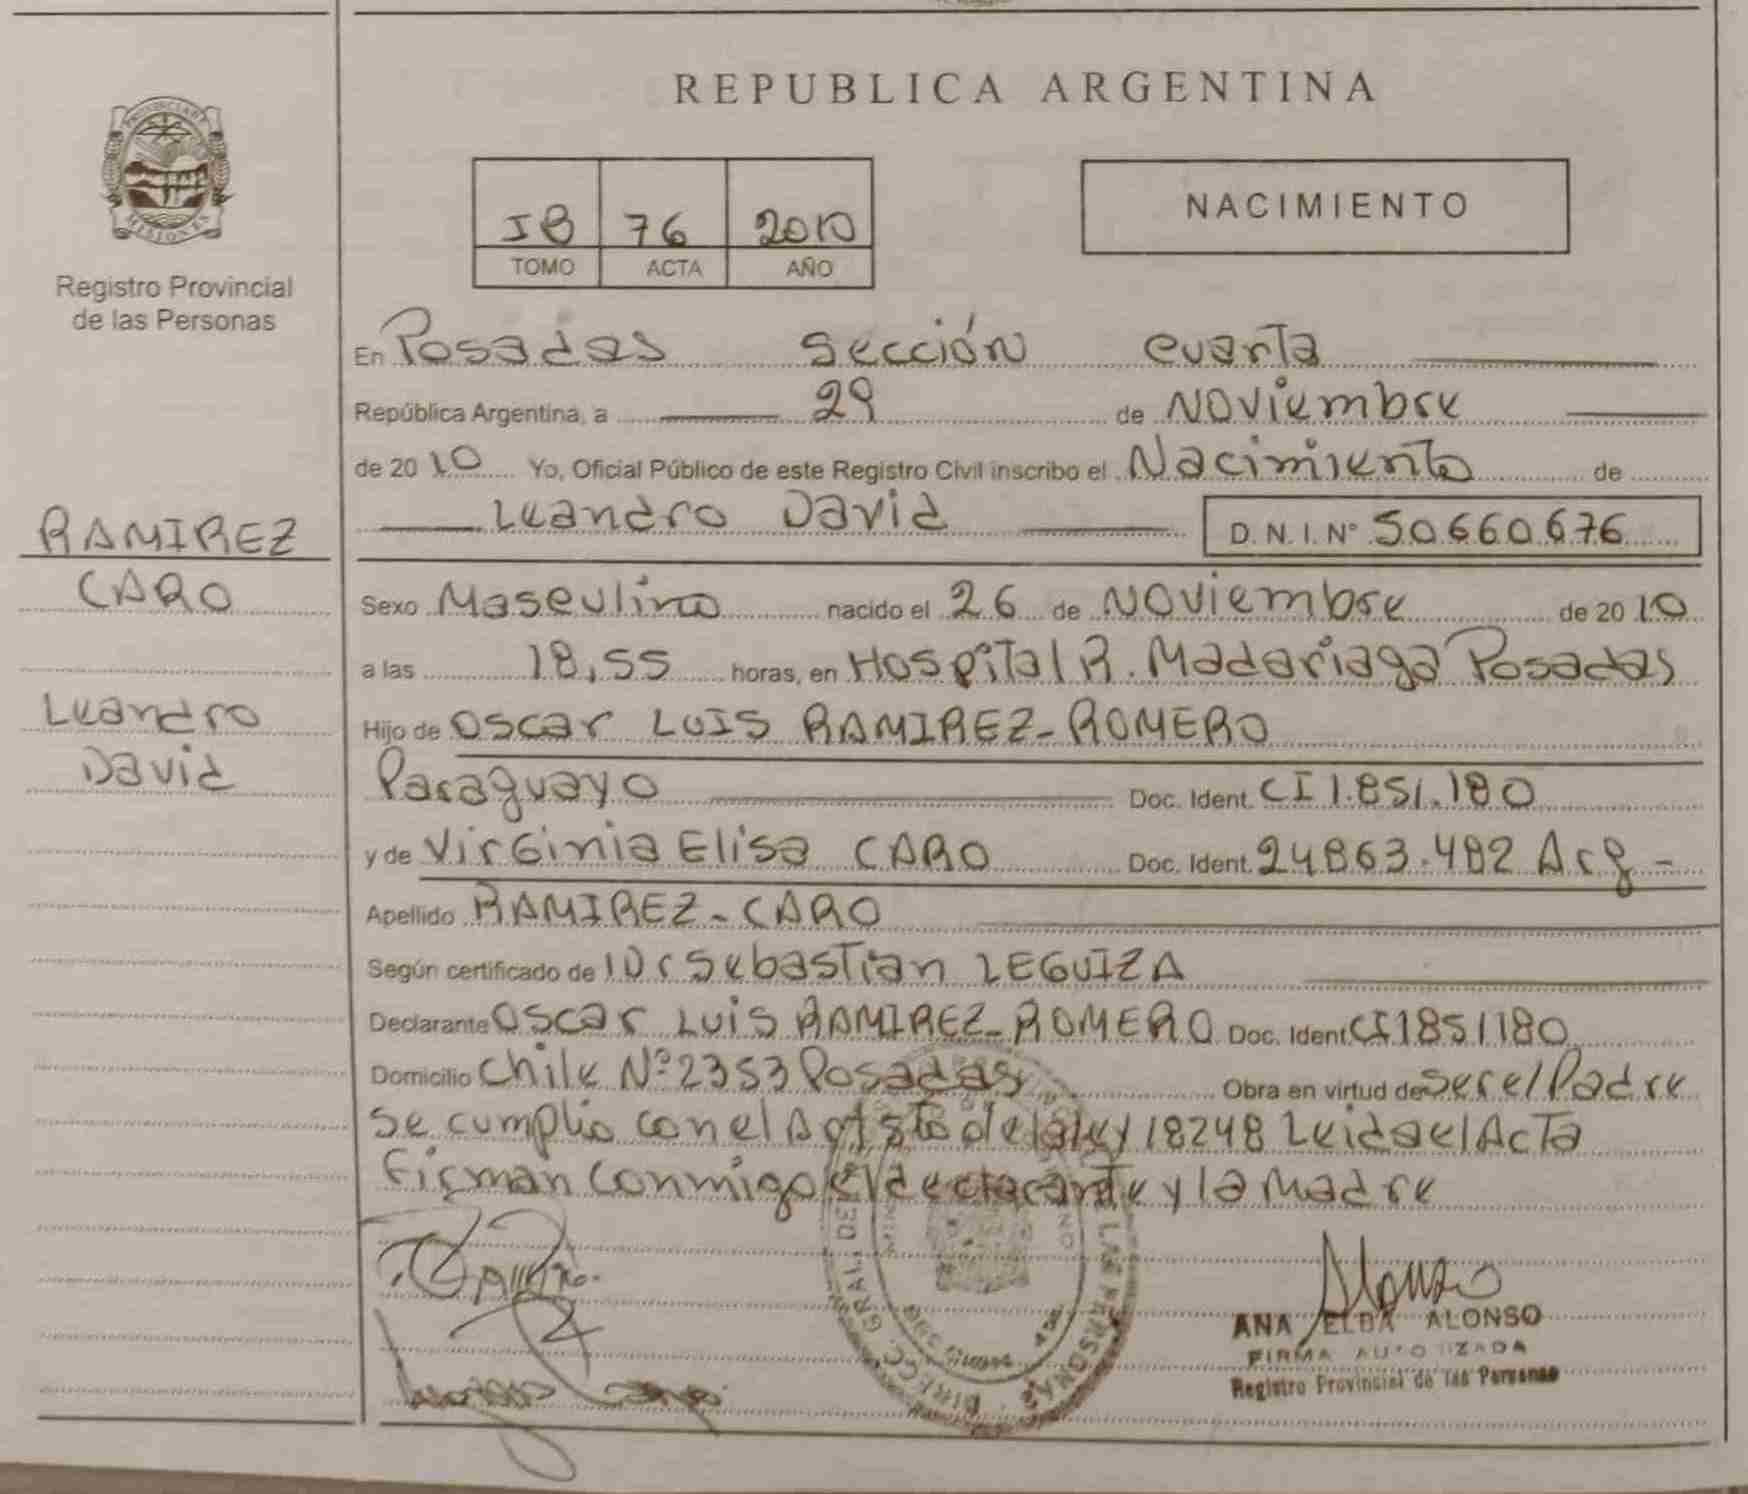 REPUBLICA ARGENTINA
PROVINCIA DE MISIONES
Registro Provincial
de las Personas
IB 76 2010
TOMO ACTA AÑO
NACIMIENTO
En Posadas Sección cuarta
República Argentina, a 29 de Noviembre
de 2010 Yo, Oficial Público de este Registro Civil inscribo el Nacimiento de
Leandro David D.N.I. Nº 50660676
RAMIREZ
CARO
Leandro
David
Sexo Masculino nacido el 26 de Noviembre de 2010
a las 18,55 horas, en Hospital R. Madariaga Posadas
Hijo de Oscar LUIS RAMIREZ-ROMERO
Paraguayo Doc. Ident. CI 1.851.180
y de Virginia Elisa CARO Doc. Ident. 24863.482 Arg-
Apellido RAMIREZ-CARO
Según certificado de Dr Sebastian LEGUIZA
Declarante Oscar Luis RAMIREZ-ROMERO Doc. Ident. CI 1851180
Domicilio Chile Nº 2353 Posadas Obra en virtud de ser el Padre
Se cumplio con el de la ley 18248 Leida el Acta
Firman Conmigo el declarante y la Madre
Alonso
ANA ELBA ALONSO
FIRMA AUTORIZADA
Registro Provincial de las Personas